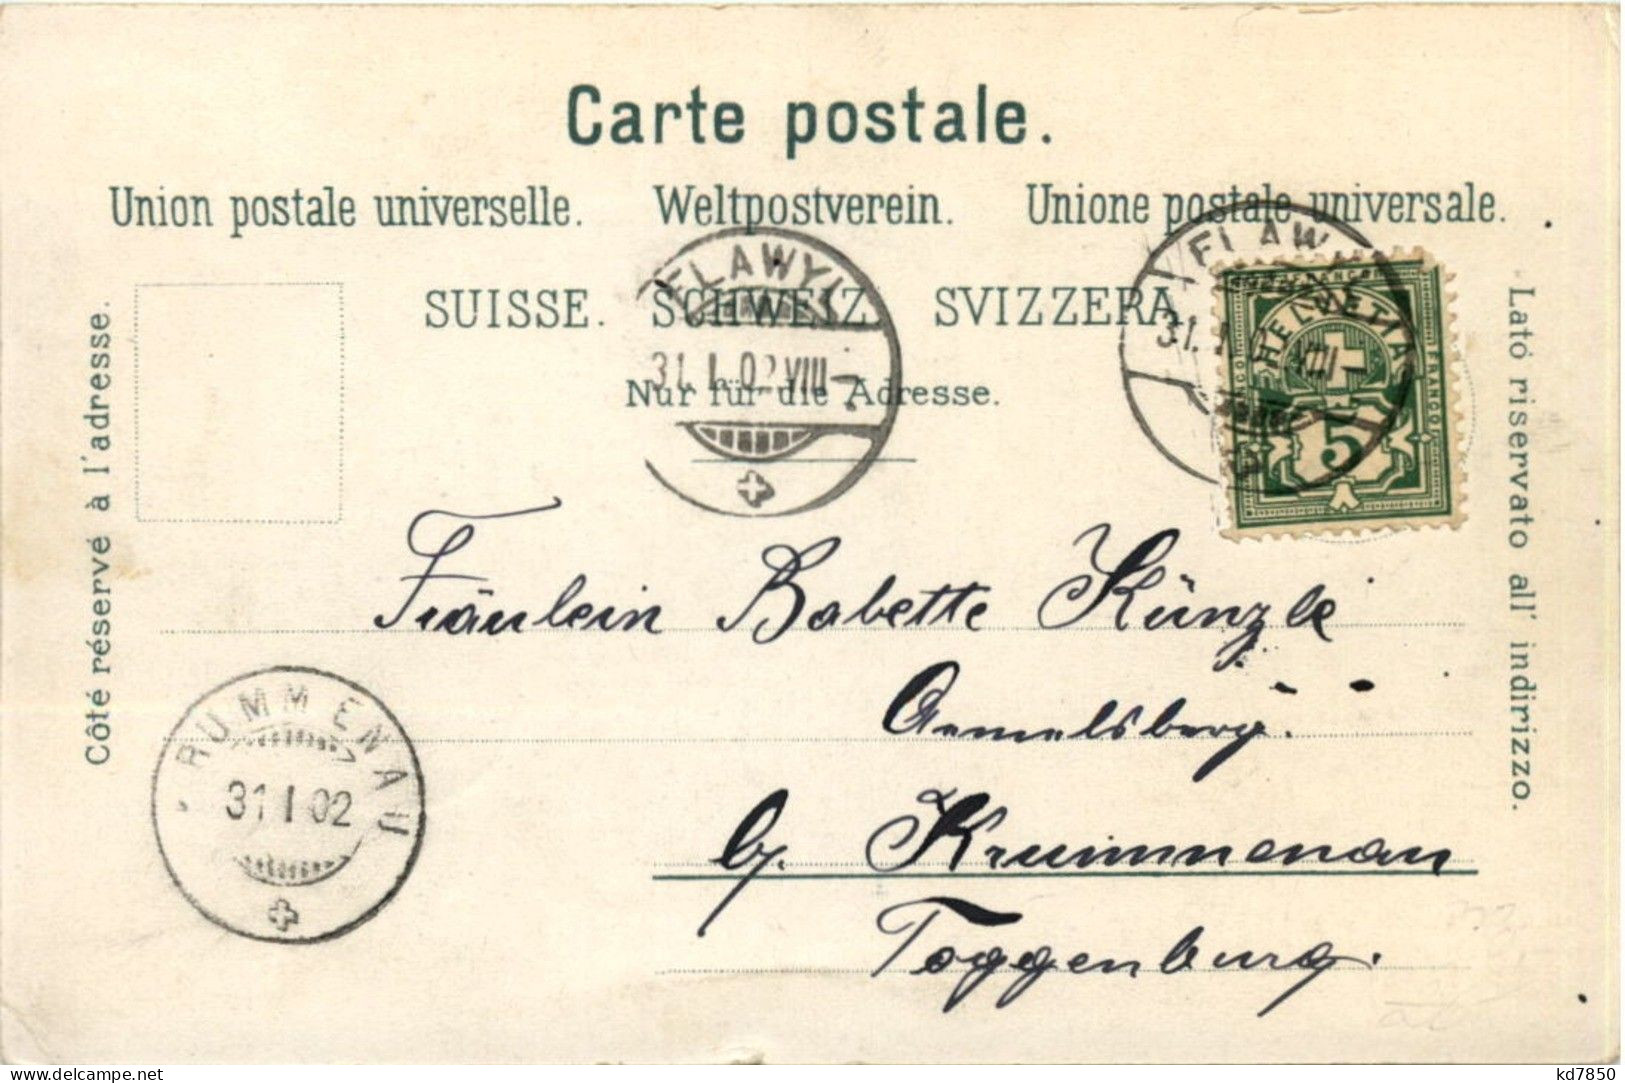 Carte postale.
Union postale universelle. Weltpostverein. Unione postale universale.
SUISSE. SCHWEIZ. SVIZZERA.
Nur für die Adresse.
Côté réservé à l'adresse.
Lato riservato all' indirizzo.
FLAWYL
31. I. 02 VIII-
FLAWYL
31. I VIII-
HELVETIA
FRANCO
5
Fräulein Babette Künzle
b/. Krummenau
Toggenburg.
KRUMMENAU
31 I 02
DELCAMPE.NET
kd7850